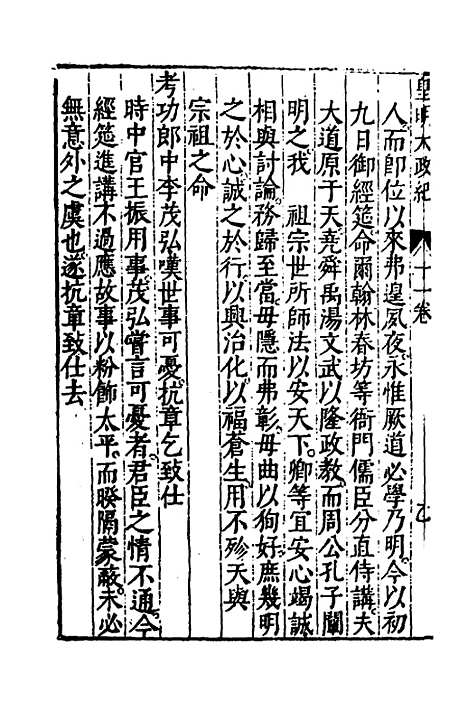 皇明大政紀　十一卷
人而即位以來弗遑夙夜永惟厥道必學乃明今以初
九日御經筵命爾翰林春坊等衙門儒臣分直侍講夫
大道原于天堯舜禹湯文武以隆政教而周公孔子闡
明之我　祖宗世所師法以安天下卿等宜安心竭誠
相與討論務歸至當毋隱而弗彰毋曲以狥好庶幾明
之於心誠之於行以興治化以福蒼生用不殄天與
宗祖之命
考功郎中李茂弘嘆世事可憂抗章乞致仕
時中官王振用事茂弘嘗言可憂者君臣之情不通今
經筵進講不過應故事以粉飾太平而暌隔蒙蔽未必
無意外之虞也遂抗章致仕去